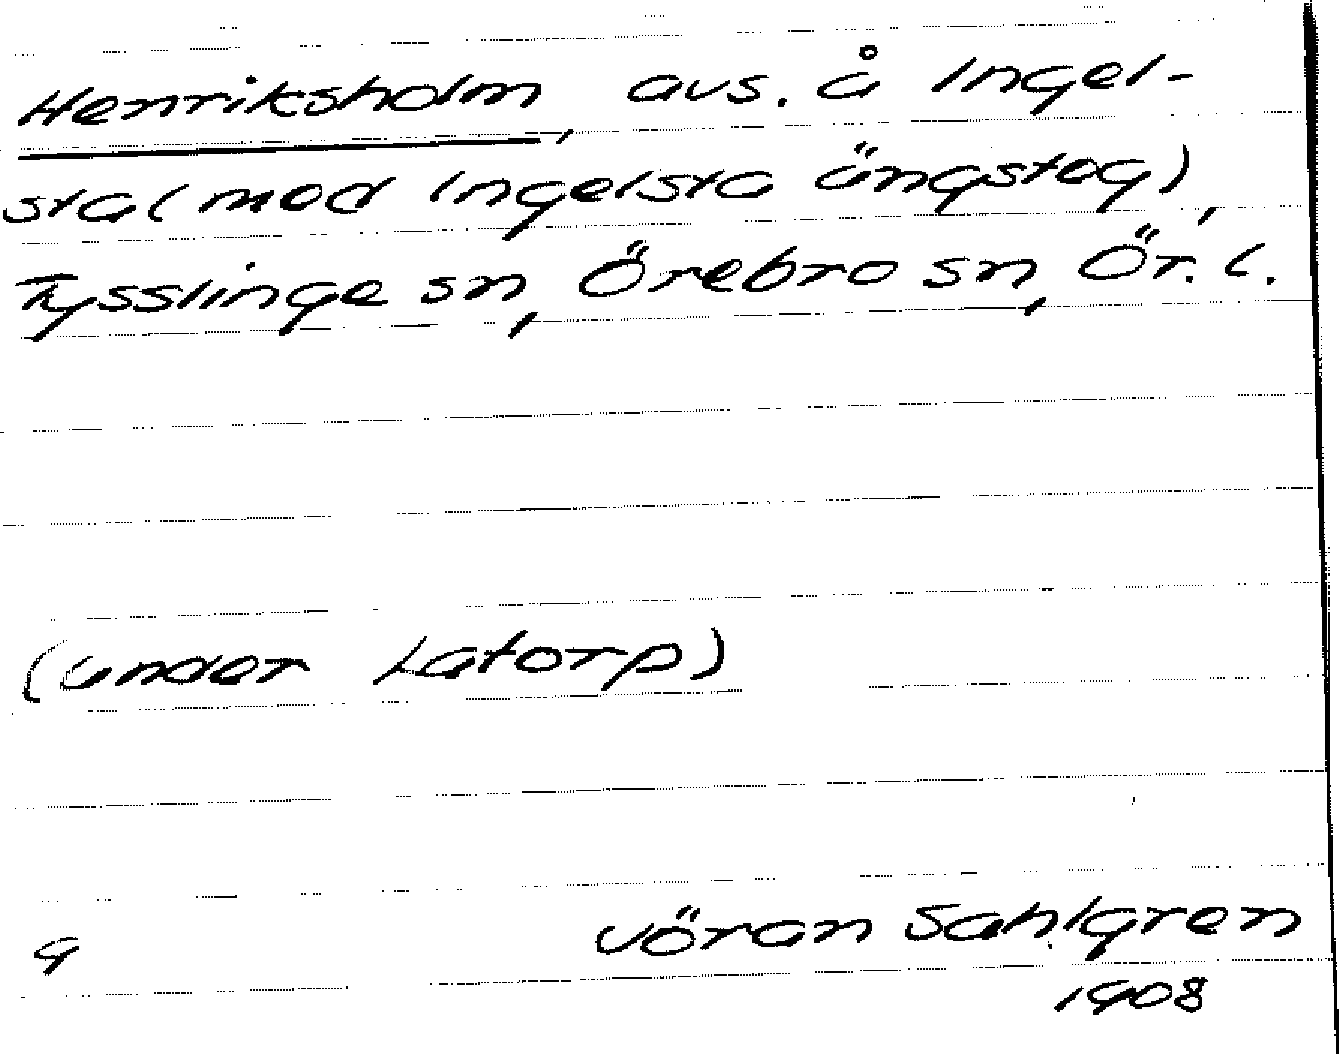 Henriksholm, avs. å Ingel-
sta (med Ingelsta ängsteg),
Tysslinge sn, Örebro sn, Ör. l.
(under Latorp)
Jöran Sahlgren
1908